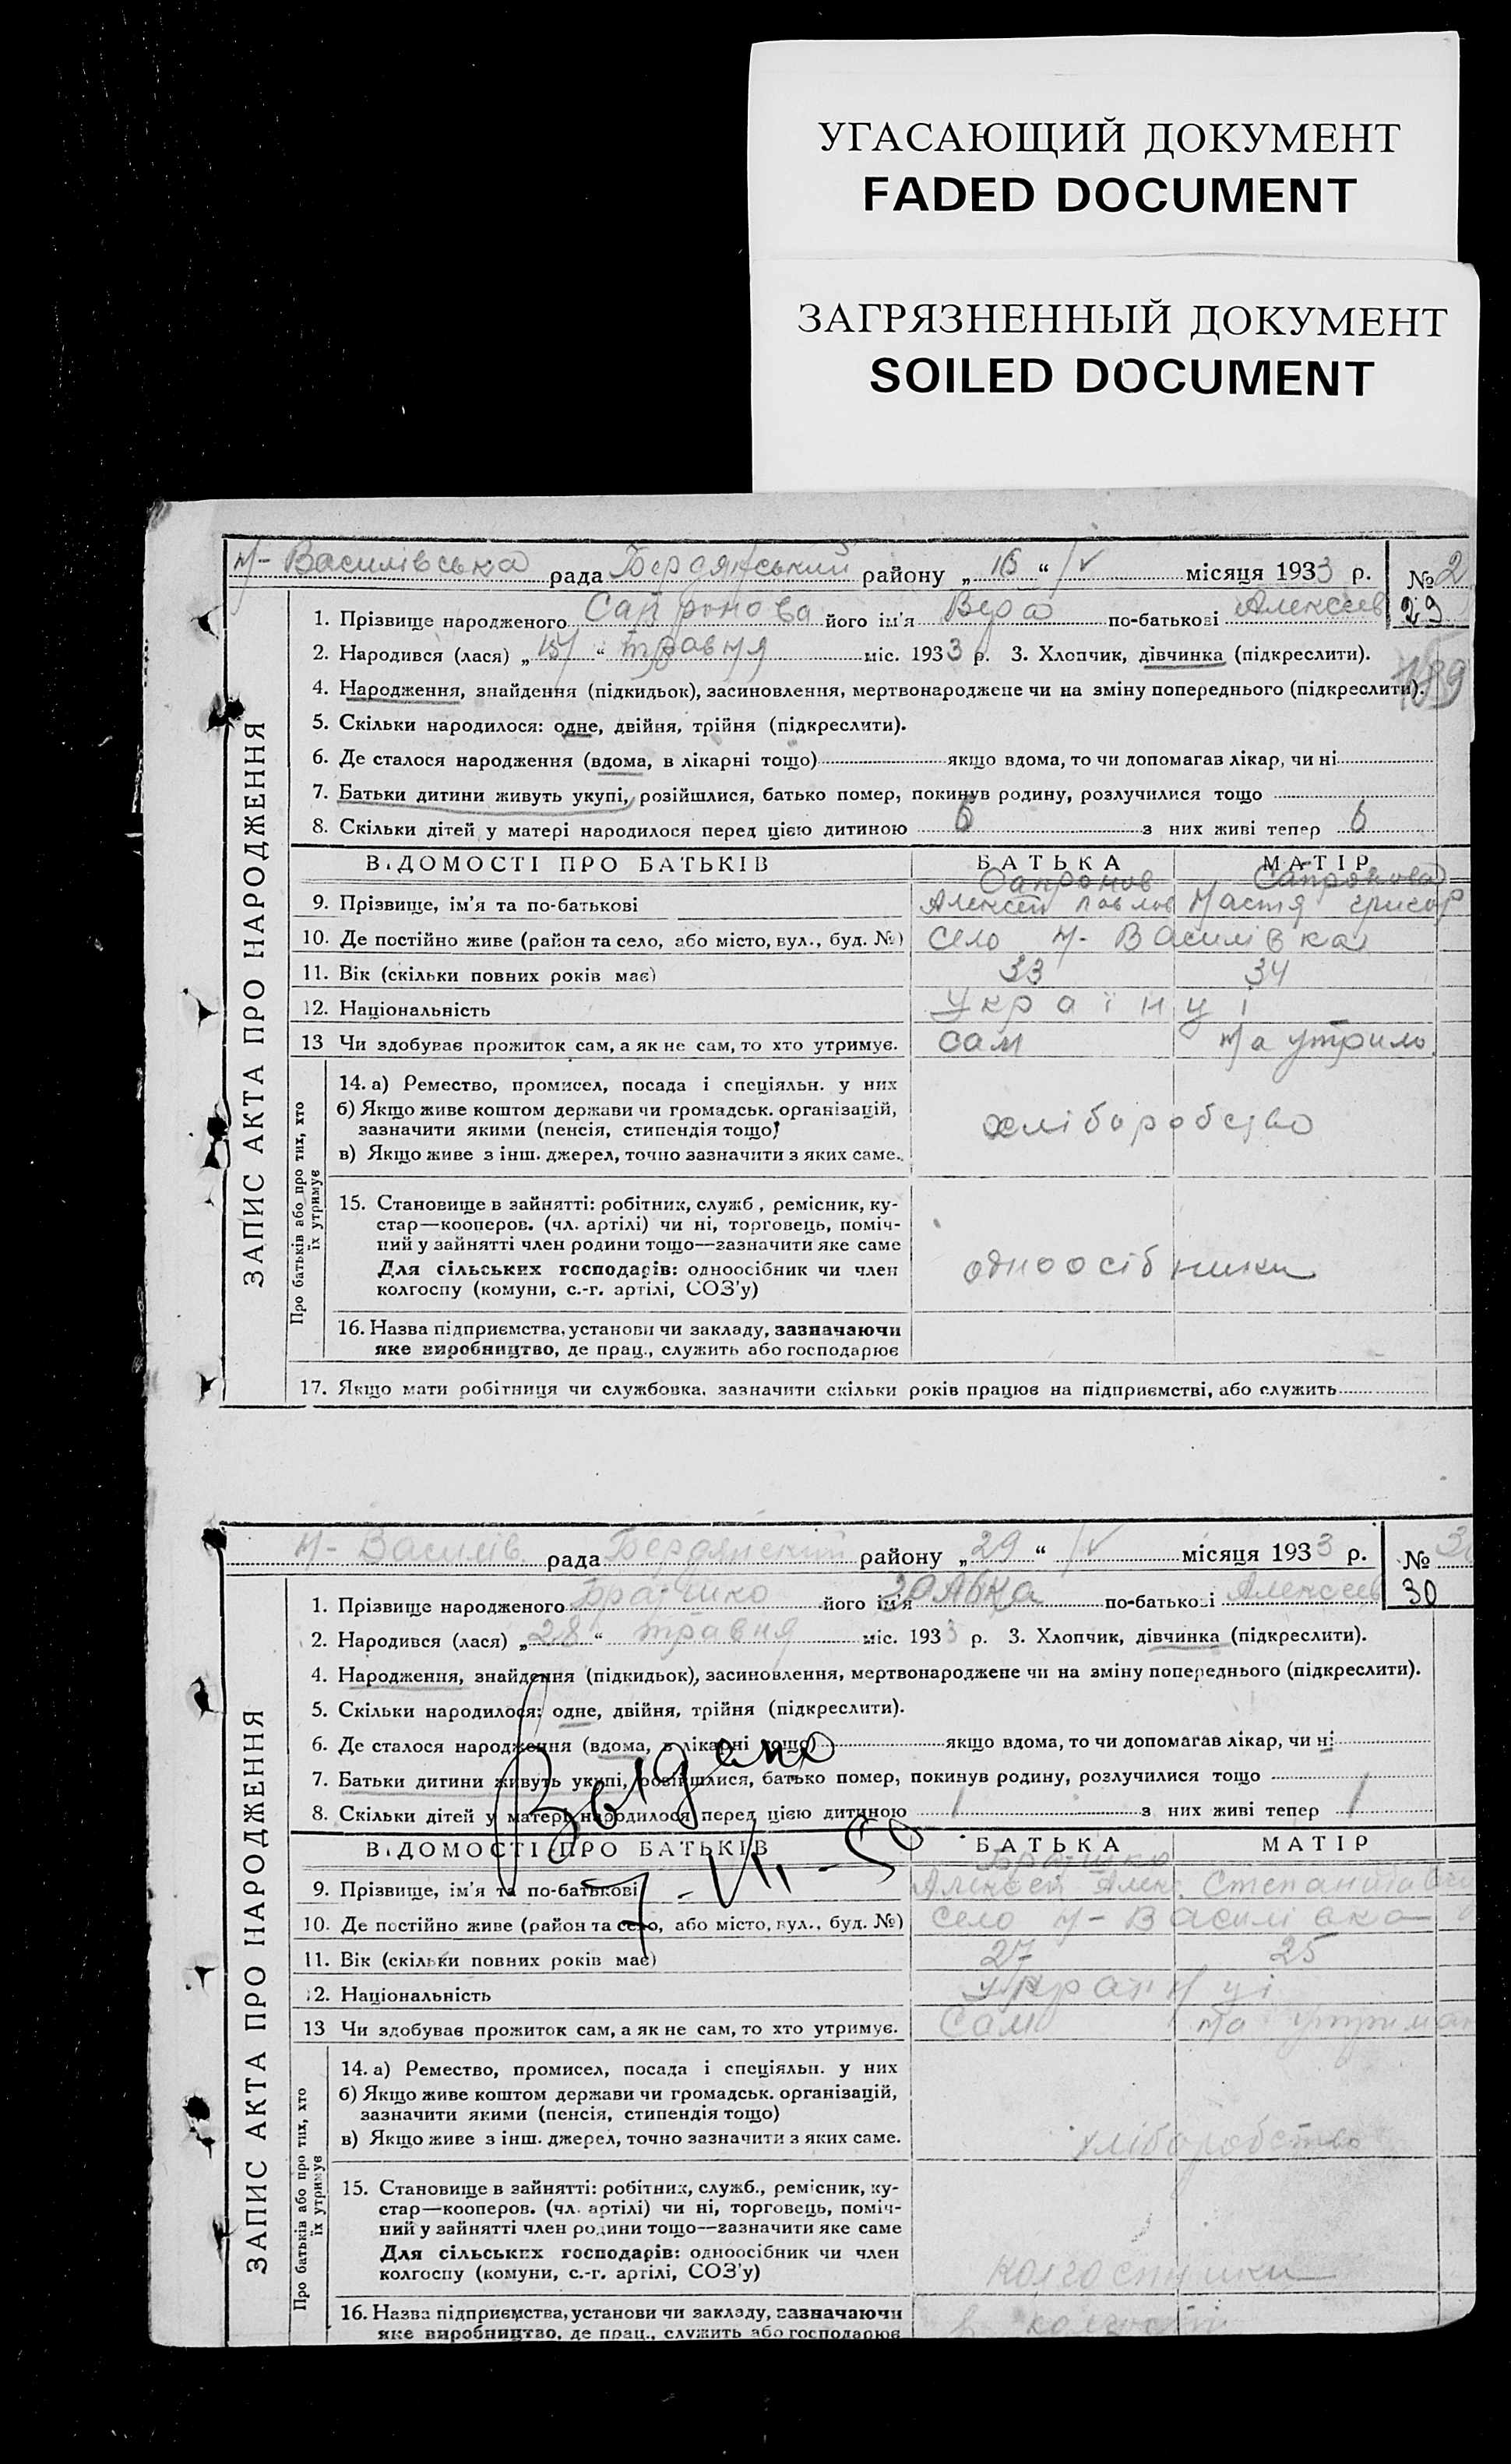 УГАСАЮЩИЙ ДОКУМЕНТ
FADED DOCUMENT
ЗАГРЯЗНЕННЫЙ ДОКУМЕНТ
SOILED DOCUMENT
Н-Василівська рада Бердянський району „ 16 “ місяця 1933 р. № 2
29
1. Прізвище народженого Сапронова його ім'я Вера по-батькові Алексеев
2. Народився (лася) „ “ травня міс. 1933 р. 3. Хлопчик, дівчинка (підкреслити).
4. Народження, знайдення (підкидьок), засиновлення, мертвонароджене чи на зміну попереднього (підкреслити).
5. Скільки народилося: одне, двійня, трійня (підкреслити).
6. Де сталося народження (вдома, в лікарні тощо) якщо вдома, то чи допомагав лікар, чи ні
7. Батьки дитини живуть укупі, розійшлися, батько помер, покинув родину, розлучилися тощо
8. Скільки дітей у матері народилося перед цією дитиною 6 з них живі тепер 6
ВІДОМОСТІ ПРО БАТЬКІВ БАТЬКА МАТІР
Сапронов Сапронова
9. Прізвище, ім'я та по-батькові Алексей Павлов Настя Григор
10. Де постійно живе (район та село, або місто, вул., буд. №) село Н-Василівка
11. Вік (скільки повних років має) 33 34
12. Національність Українці
13 Чи здобуває прожиток сам, а як не сам, то хто утримує. сам на утрим
14. а) Ремество, промисел, посада і спеціяльн. у них
б) Якщо живе коштом держави чи громадськ. організацій,
зазначити якими (пенсія, стипендія тощо)
хліборобство
в) Якщо живе з інш. джерел, точно зазначити з яких саме.
15. Становище в зайнятті: робітник, служб., ремісник, ку-
стар—кооперов. (чл. артілі) чи ні, торговець, поміч-
ний у зайнятті член родини тощо—зазначити яке саме
Для сільських господарів: одноосібник чи член
одноосібники
колгоспу (комуни, с.-г. артілі, СОЗ'у)
16. Назва підприємства, установи чи закладу, зазначаючи
яке виробництво, де прац., служить або господарює
17. Якщо мати робітниця чи службовка, зазначити скільки років працює на підприємстві, або служить
ЗАПИС АКТА ПРО НАРОДЖЕННЯ
Про батьків або про тих, хто
їх утримує
Н-Василів. рада Бердянский району „ 29 “ місяця 1933 р. №
30
1. Прізвище народженого Братшко його ім'я по-батькові Алексеев
2. Народився (лася) „ 28 “ травня міс. 1933 р. 3. Хлопчик, дівчинка (підкреслити).
4. Народження, знайдення (підкидьок), засиновлення, мертвонароджене чи на зміну попереднього (підкреслити).
5. Скільки народилося: одне, двійня, трійня (підкреслити).
6. Де сталося народження (вдома, в лікарні тощо) якщо вдома, то чи допомагав лікар, чи ні
Выдано
7. Батьки дитини живуть укупі, розійшлися, батько помер, покинув родину, розлучилися тощо
8. Скільки дітей у матері народилося перед цією дитиною 1 з них живі тепер 1
ВІДОМОСТІ ПРО БАТЬКІВ БАТЬКА МАТІР
9. Прізвище, ім'я та по-батькові Алексей Алек.
10. Де постійно живе (район та село, або місто, вул., буд. №) село Н-Василівка
11. Вік (скільки повних років має) 27 25
12. Національність Українці
13 Чи здобуває прожиток сам, а як не сам, то хто утримує. сам на утриман
14. а) Ремество, промисел, посада і спеціяльн. у них
б) Якщо живе коштом держави чи громадськ. організацій,
зазначити якими (пенсія, стипендія тощо)
в) Якщо живе з інш. джерел, точно зазначити з яких саме.
хліборобство
15. Становище в зайнятті: робітник, служб., ремісник, ку-
стар—кооперов. (чл. артілі) чи ні, торговець, поміч-
ний у зайнятті член родини тощо—зазначити яке саме
Для сільських господарів: одноосібник чи член
колгоспу (комуни, с.-г. артілі, СОЗ'у)
колгоспники
16. Назва підприємства, установи чи закладу, зазначаючи
яке виробництво, де прац., служить або господарює
в колгоспі
ЗАПИС АКТА ПРО НАРОДЖЕННЯ
Про батьків або про тих, хто
їх утримує